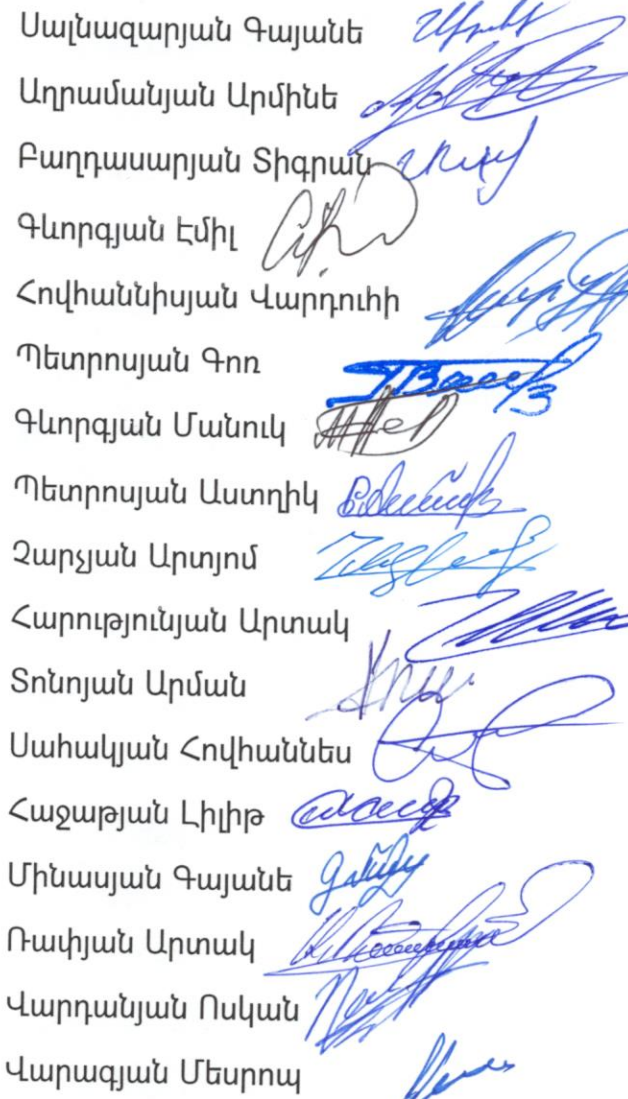 Սալնազարյան Գայանե
Աղրամանյան Արմինե
Բաղդասարյան Տիգրան
Գևորգյան Էմիլ
Հովհաննիսյան Վարդուհի
Պետրոսյան Գոռ
Գևորգյան Մանուկ
Պետրոսյան Աստղիկ
Չարչյան Արտյոմ
Հարությունյան Արտակ
Տոնոյան Արման
Սահակյան Հովհաննես
Հաջաթյան Լիլիթ
Մինասյան Գայանե
Ռափյան Արտակ
Վարդանյան Ոսկան
Վարագյան Մեսրոպ